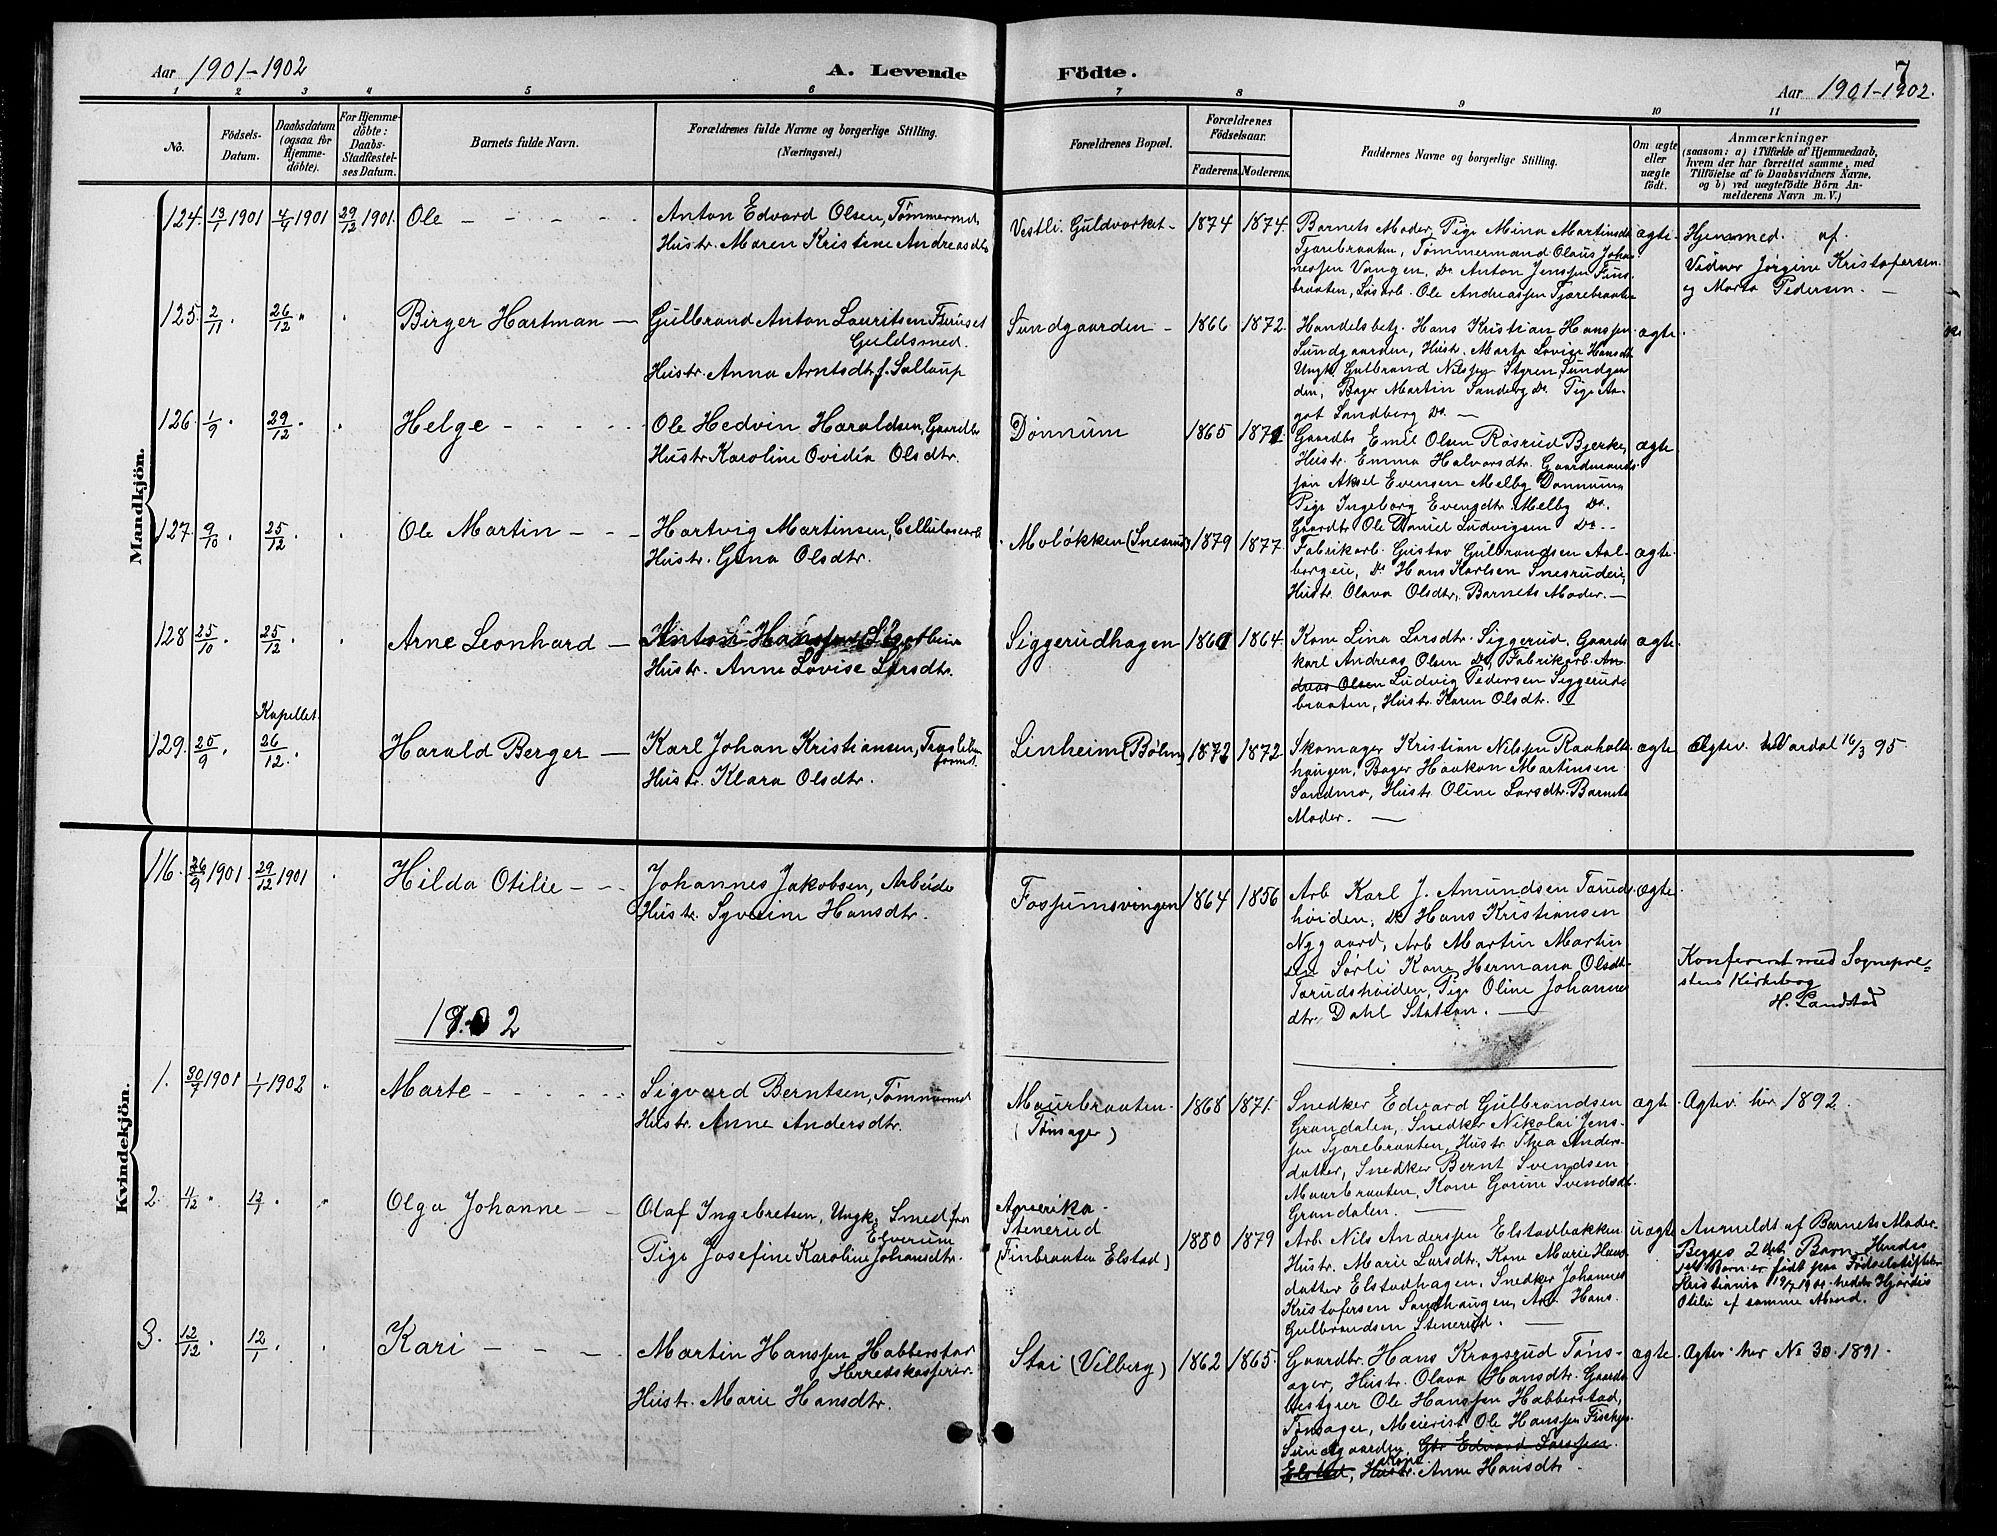 Aar 1901-1902
A. Levende
Födte.
7
Aar 1901-1902.
1 2 3 4 5 6 7 8 9 10 11
No.
Födsels-
Datum.
Daabsdatum
(ogsaa for
Hjemme-
döbte).
For Hjemme-
döbte:
Daabs-
Stadfæstel-
ses Datum.
Barnets fulde Navn.
Forældrenes fulde Navne og borgerlige Stilling.
(Næringsvei.)
Forældrenes Bopæl.
Forældrenes
Födselsaar.
Faderens. Moderens.
Faddernes Navne og borgerlige Stilling.
Om ægte
eller
uægte
födt.
Anmærkninger
(saasom: a) i Tilfælde af Hjemmedaab,
hvem der har forrettet samme, med
Tilföielse af to Daabsvidners Navne,
og b) ved uægtefödte Börn An-
melderens Navn m. V.)
Mandkjön.
124. 13/1 1901 4/4 1901 29/12 1901. Ole
Anton Edvard Olsen, Tømmermd
Hustr. Maren Kristine Andreasdtr
Vestli. Guldværket - 1874 1874.
Barnets Moder, Pige Mina Martinsdt
Tjærebraaten, Tømmermand Olaus Johan-
nessen Vangen, Do Anton Jenssen Fins-
braaten, Løsarb. Ole Andreassen Tjærebraaten
ægte
Hjemmed. af.
Vidner Jørgine Kristofersen
og Marta Pedersen. -
125. 2/11 " 26/12 " " Birger Hartman
Gulbrand Anton Lauritsen Furuset
Guldsmed.
Hustr. Anna Arntsdtr f. Sollaup
Sundgaarden - 1866 1872.
Handelsbetj. Hans Kristian Hanssen
Sundgaarden, Hustr. Marte Lovise Hansdt
Ungk. Gulbrand Nilssen Styren Sundgaar
den, Bager Martin Sandberg Do. Pige Aa-
got Sandberg Do. -
ægte
126. 1/9 " 29/12 " Helge
Ole Hedvin Haraldsen, Gaardbr
Hustr. Karoline Ovidia Olsdtr.
Dønnum 1865 1871.
Gaardbr Emil Olsen Rosrud Bjerke,
Hustr. Emma Halvorsdtr. Gaardmands
søn Aksel Evensen Melby Dønnum,
Pige Ingeborg Evensdtr Melby Do.
Gaardbr Ole Daniel Ludvigsen Do.
ægte
127. 9/10 25/12 " Ole Martin
Hartvig Martinsen, Cellulosearb
Hustr. Gina Olsdtr.
Moløkken (Snesrud) 1879 1877.
Fabrikarb. Gustav Gulbrandsen Aal-
borgeie, Do Hans Karlsen Snesrudeie,
Hustr. Olava Olsdtr. Barnets Moder. -
ægte
128 25/10 25/12 " Arne Leonhard
Anton Hanssen
Hustr. Anne Lovise Larsdtr.
Siggerudhagen 1861 1864.
Kone Lina Larsdtr. Siggerud, Gaards
karl Andreas Olsen Do, Fabrikarb. An-
dreas Olsen Ludvig Pedersen Siggeruds
braaten, Hustr. Karen Olsdtr.
ægte
Kapellet.
129. 25/9 " 26/12. Harald Berger
Karl Johan Kristiansen,
Hustr. Klara Olsdtr.
Linheim (Bøhn) 1872 1872
Skomager Kristian Nilssen Raaholt
haugen, Bager Haakon Martinsen
Sandmo, Hustr. Oline Larsdtr. Barnets
Moder. -
ægte
Ægtev. i Vardal 16/3 95.
Kvindekjön.
116. 26/9 1901. 29/12 1901 " Hilda Otilie
Johannes Jakobsen, Arbeide
Hustr. Syverine Hansdtr.
Fossumsvingen 1864 1856
Arb Karl J. Amundsen Tørud
høiden, Do Hans Kristiansen
Nygaard, Arb Martin Martin
sen Sørli Kone Hermana Olsdt
Tørudshøiden, Pige Oline Johannes
dtr. Dahl Station. -
ægte
Konfereret med Sognepre-
stens Kirkebog
H. Landstad
1902
1. 30/7 1901 1/1 1902 " Marte
Sigvard Berntsen, Tømmermd
Hustr. Anne Andersdtr.
Maurbraaten.
(Tønsager)
1868 1871.
Snedker Edvard Gulbrandsen
Grandalen, Snedker Nikolai Jens-
sen Tjærebraaten, Hustr. Thea Anders-
datter, Snedker Bernt Svendsen
Maurbraaten, Kone Gorine Svendsdt.
Grandalen. -
ægte
Ægtev. her 1892.
2. 4/12 " 12/1 " " Olga Johanne
Olaf Ingebretsen, Ungk. Smed fra
Elverum
Pige Josefine Karoline Johansdtr.
Amerika.
Stenerud
(Finbraaten Elstad)
1880 1879
Arb. Nils Anderssen Elstadbakken
Hustr. Marie Larsdtr, Kone Marie Hans
datter Elstadhagen, Snedker Johannes
Kristofersen Sandhaugen, Arb. Hans
Gulbrandsen Stenerud. -
uægte
Anmeldt af Barnets Moder.
Begges 2det Barn. Hendes
1ste Barn er født paa Fødselsstiftelsen
Kristiania 19/7 1900. hedder Hjørdis
Otilie af samme Mand.
3. 12/12 " 12/1 " Kari
Martin Hanssen Habberstad
Herredskasserer.
Hustr. Marie Hansdtr.
Stai (Vilberg) 1862 1865.
Gaardbr. Hans Kragsrud Tøns-
ager, Hustr. Olava Hansdtr. Gaards
bestyrer Ole Hanssen Habberstad,
Tønsager, Meierist Ole Hanssen Fischer
Sundgaarden, Gbr Edvard Larssen
Elstad, Hustr. Kone Anne Hansdtr.
ægte
Ægtev. her No 30. 1891.